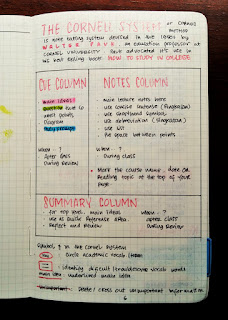 THE CORNELL SYSTEM or CORNELL METHOD
is note taking system devised in the 1950s by
WALTER PAUK, an education professor at
CORNELL UNIVERSITY. Pauk advocated its use in
his best selling book HOW TO STUDY IN COLLEGE
CUE COLUMN
- Main Ideas
- Questions
meet points
- Diagram
- Study prompts
When - ?
After Class
During Review
NOTES COLUMN
- main lecture notes here
- use concise sentence
- use shorthand symbols
- use abbreviation
- use list
- put space between points
When - ?
During class
* Mark the course name, date or
Reading topic at the top of your
page
SUMMARY COLUMN
- for top level main ideas
- use as Quick Reference
- Reflect and Review
When - ?
after class
During Review
Symbol in the Cornell System
- Circle academic vocab
- Identify difficult vocab words
main idea underlined main idea
unimportant Delete / cross out unimportant
6